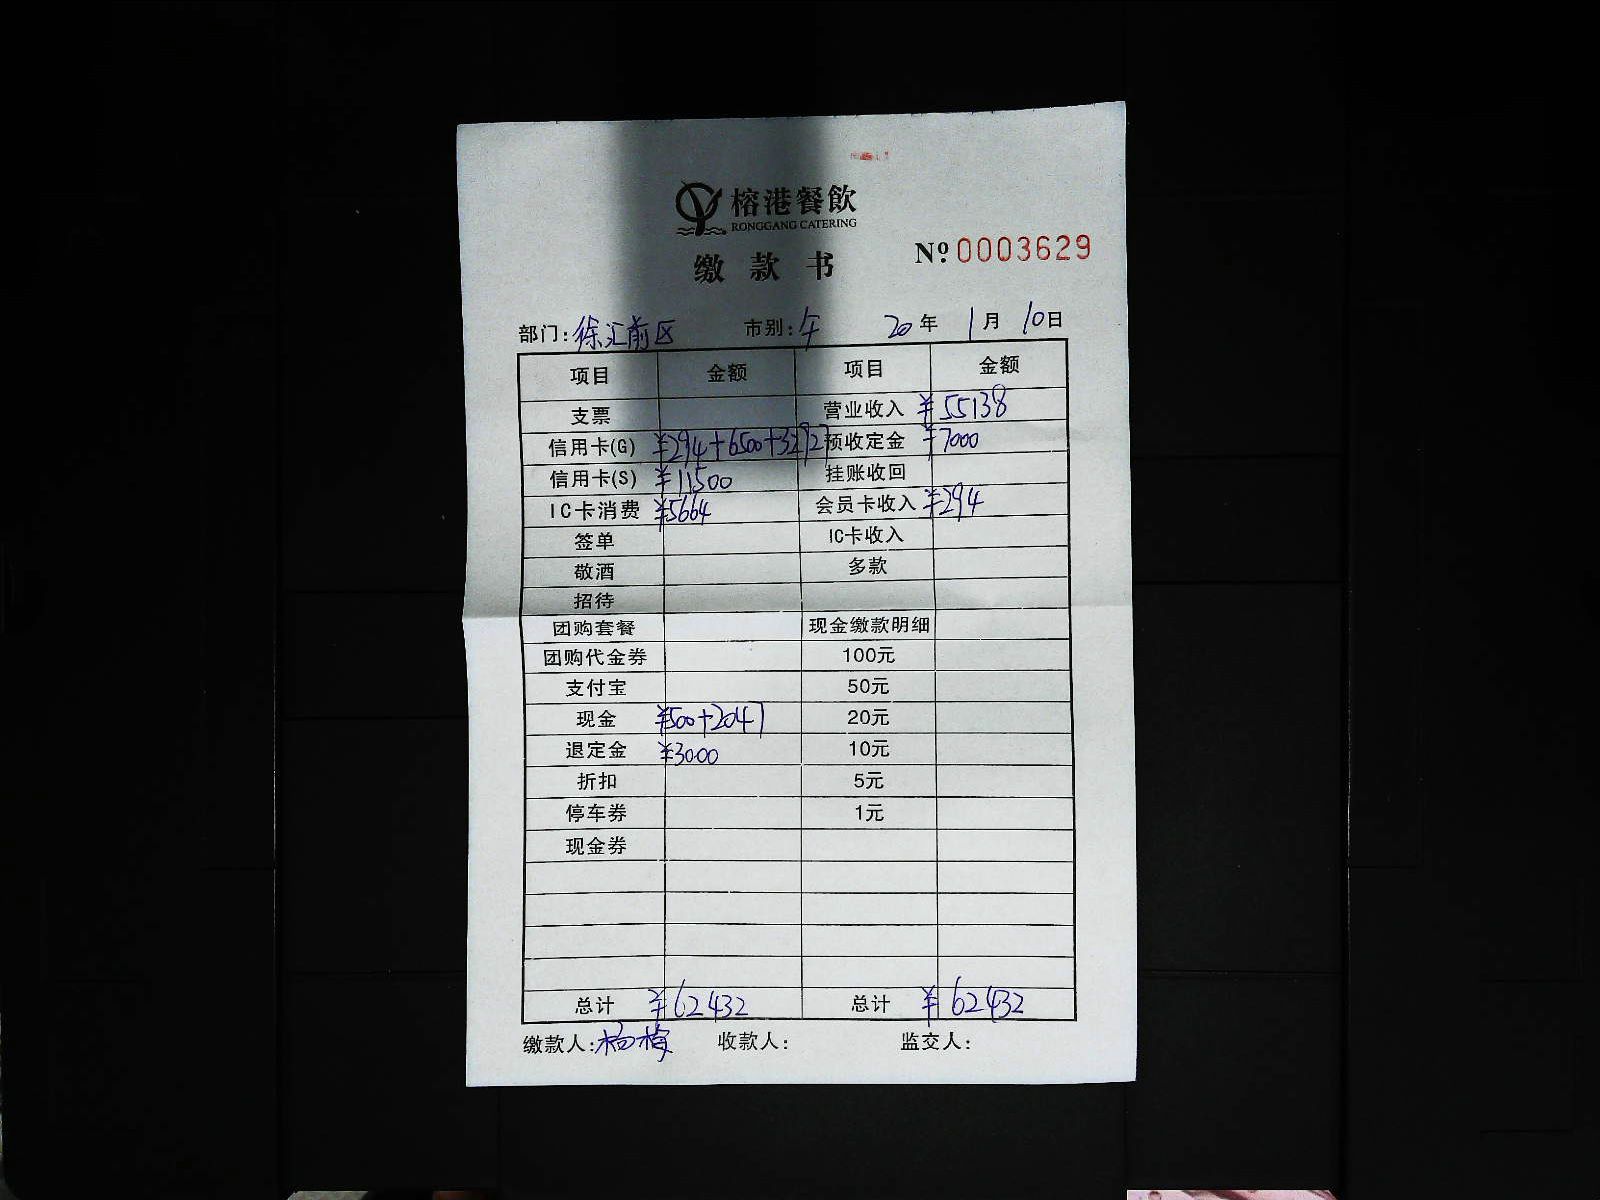 榕港餐飲
RONGGANG CATERING
缴款书
№ 0003629
部门：徐汇前区 市别：午 20年 1月 10日
项目 金额 项目 金额
支票 营业收入 ¥55138
信用卡(G) ¥294+6500+32927 预收定金 ¥7000
信用卡(S) ¥11500 挂账收回
IC卡消费 ¥5664 会员卡收入 ¥294
签单 IC卡收入
敬酒 多款
招待
团购套餐 现金缴款明细
团购代金券 100元
支付宝 50元
现金 ¥500+2047 20元
退定金 ¥3000 10元
折扣 5元
停车券 1元
现金券
总计 ¥62432 总计 ¥62432
缴款人：杨梅 收款人： 监交人：